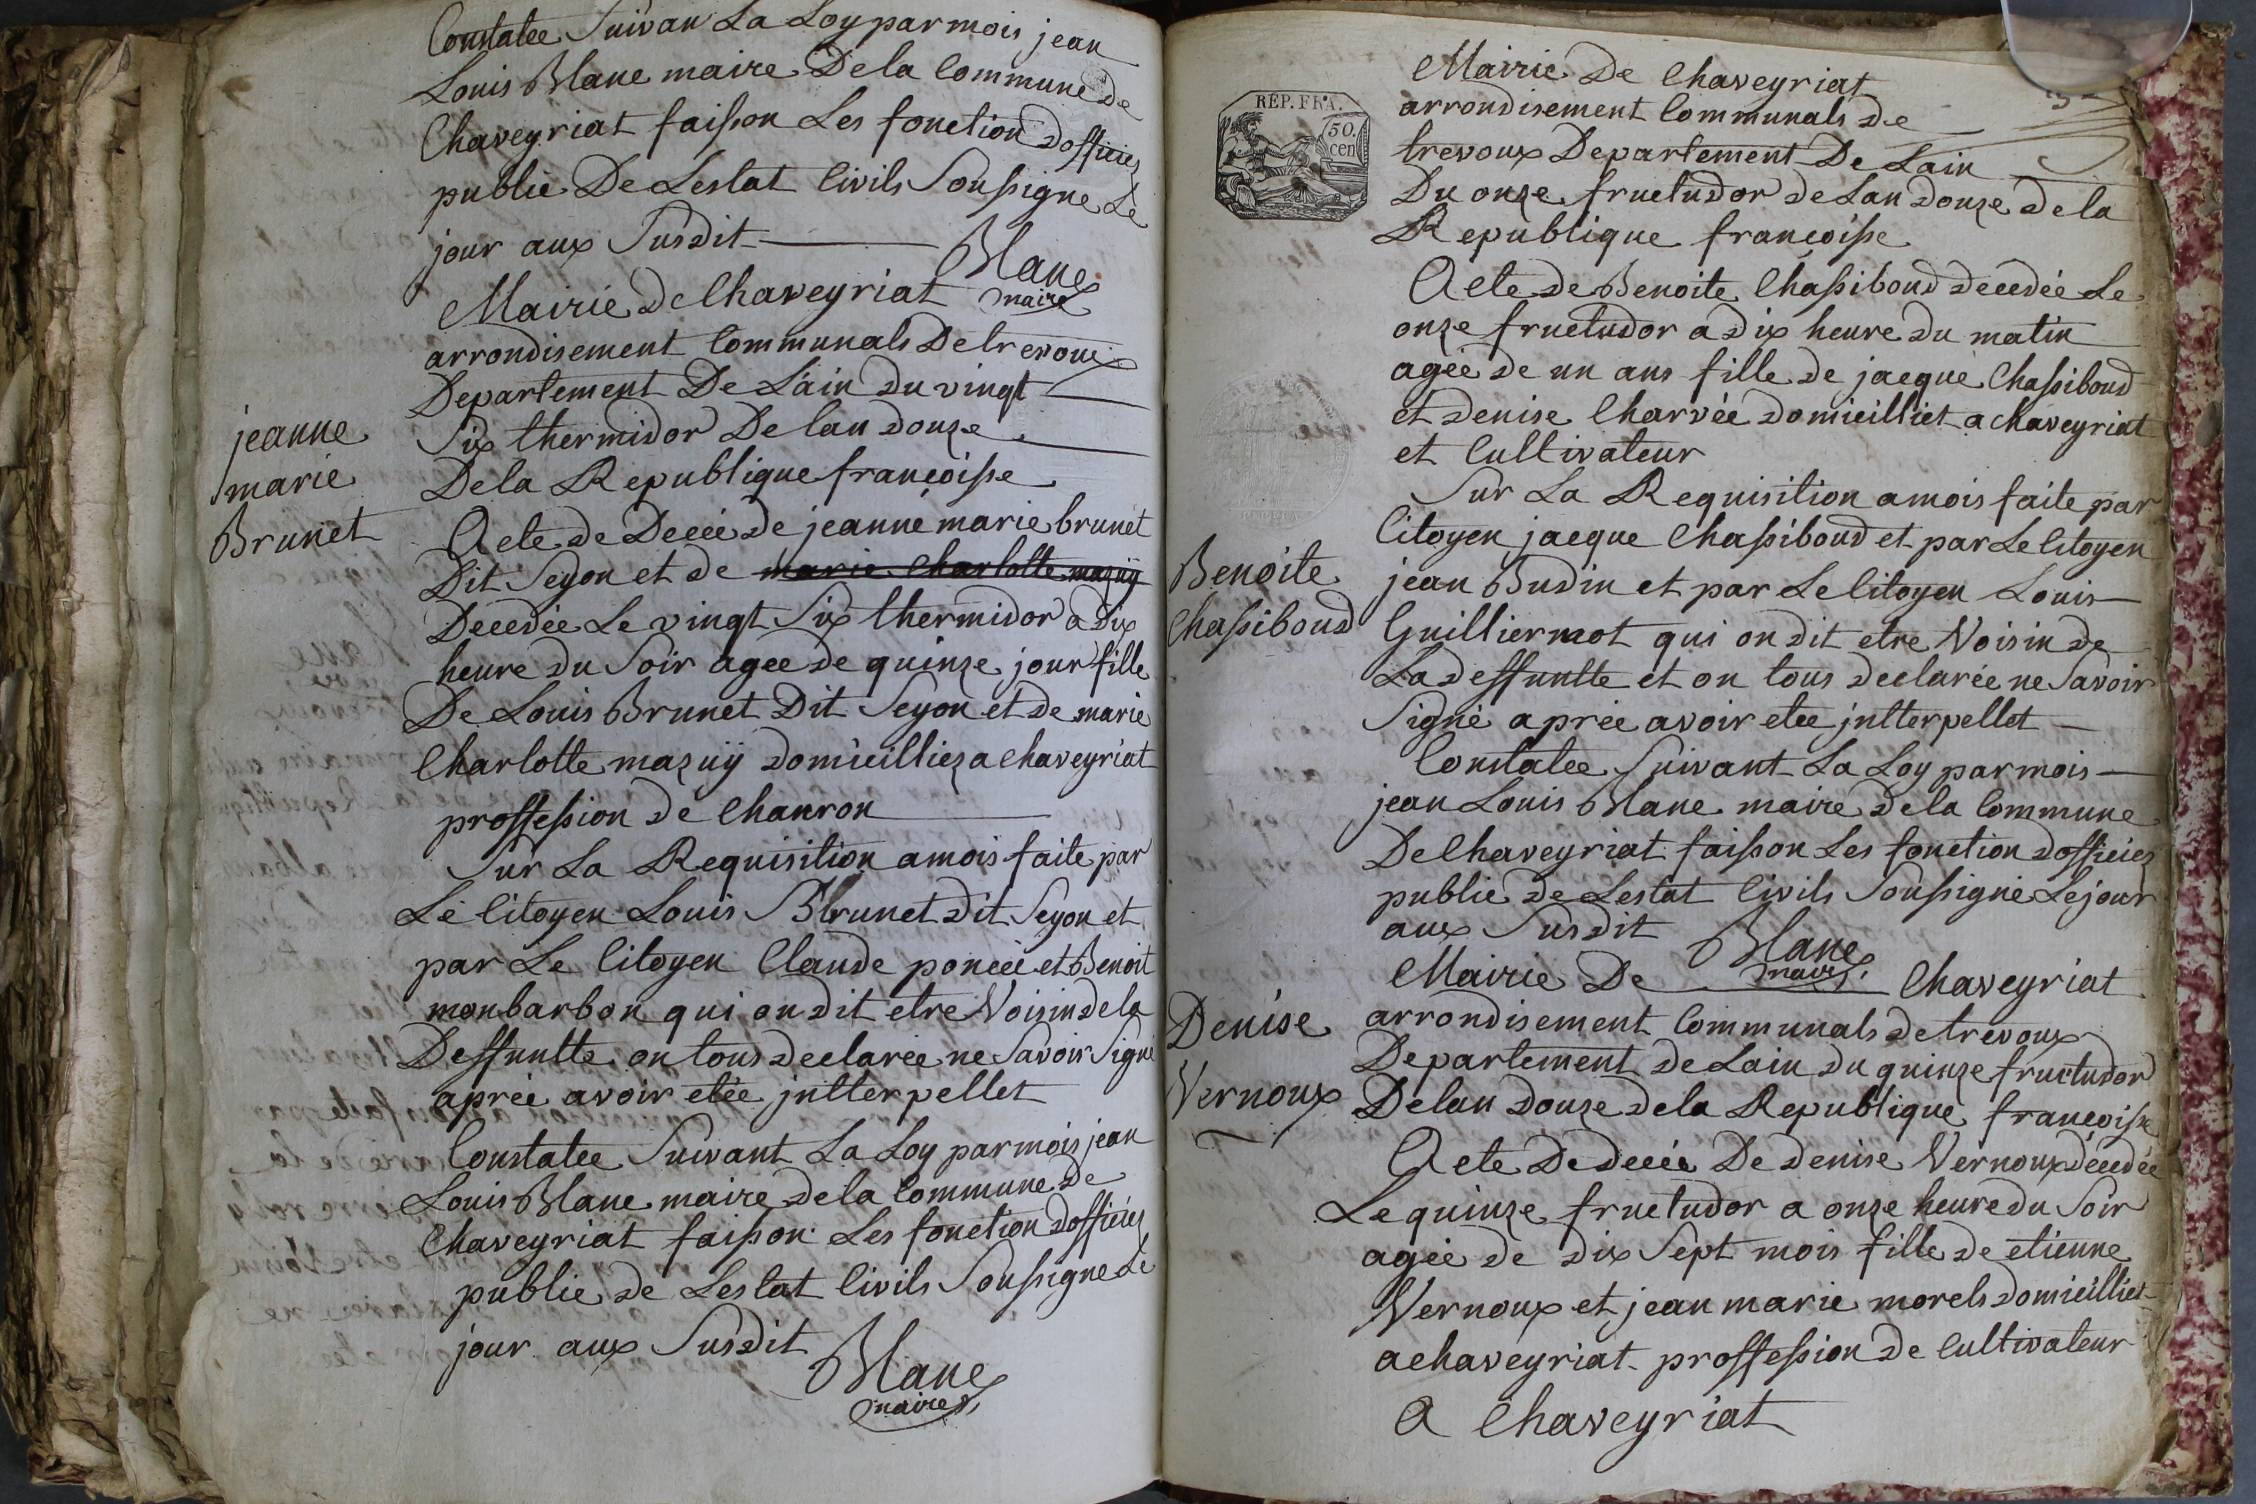 Constatee Suivan La Loy par mois jean
Louis Blanc maire De la Commune de
Chaveyriat faisson Les fonction dofficiez
public De Lestat Civils Soussigne Le
jour aux Susdit
Blanc
maire
Mairie de Chaveyriat
arrondisement Communals De trevoux
Departement De Lain Du vingt
Six thermidor De lan douze
De la Republique françoisse
jeanne
marie
Brunet
Acte de Decée de jeanne marie brunet
Dit Seyon et de marie Charlotte mazuÿ
Decedée Le vingt Six thermidor a dix
heure du Soir agee de quinze jour fille
De Louis Brunet Dit Seyon et de marie
Charlotte mazuÿ domicilliez a Chaveyriat
proffession de Chanron
Sur La Requisition a mois faite par
Le Citoyen Louis Brunet dit Seyon et
par Le Citoyen Claude poncée et Benoit
monbarbon qui on dit etre Voisin de la
Deffuntte on tous declarée ne Savoir Signé
aprée avoir etée jntterpellet
Constatee Suivant La Loy par mois jean
Louis Blanc maire de la Commune de
Chaveyriat faisson Les fonction dofficiez
public de Lestat Civils Soussigne Le
jour aux Susdit
Blanc
maire
REP. FRA.
50.
cen
Mairie De Chaveyriat
arrondisement Communals de
trevoux Departement De Lain
Du onze fructudor de Lan douze de la
Republique françoisse
Acte de Benoite Chassiboud decedée Le
onze fructudor a dix heure du matin
agée de un ans fille de jacque Chassiboud
et denise Charvée domicilliet a Chaveyriat
et Cultivateur
Sur La Requisition a mois faite par
Citoyen jacque Chassiboud et par Le Citoyen
Benoite
Chassiboud
jean Budin et par Le Citoyen Louis
Guilliermot qui on dit etre Voisin de
La deffuntte et on tous declarée ne Savoir
Signé aprée avoir etee jntterpellet
Constatee Suivant La Loy par mois
jean Louis Blanc maire de la Commune
De Chaveyriat faisson Les fonction dofficiez
public de Lestat Civils Soussigné Le jour
aux Susdit
Blanc
maire
Mairie De Chaveyriat
Denise
Vernoux
arrondisement Communals de trevoux
Departement de Lain du quinze fructudor
De lan douze de la Republique françoisse
Acte De decée De denise Vernoux décedée
Le quinze fructudor a onze heure du Soir
agée de dix Sept mois fille de etienne
Vernoux et jean marie morels domicilliet
a chaveyriat proffession de Cultivateur
A Chaveyriat